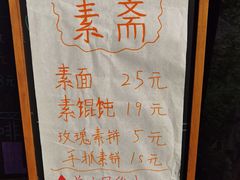 素斋
素面 25元
素馄饨 19元
玫瑰素饼 5元
手抓素饼 15元